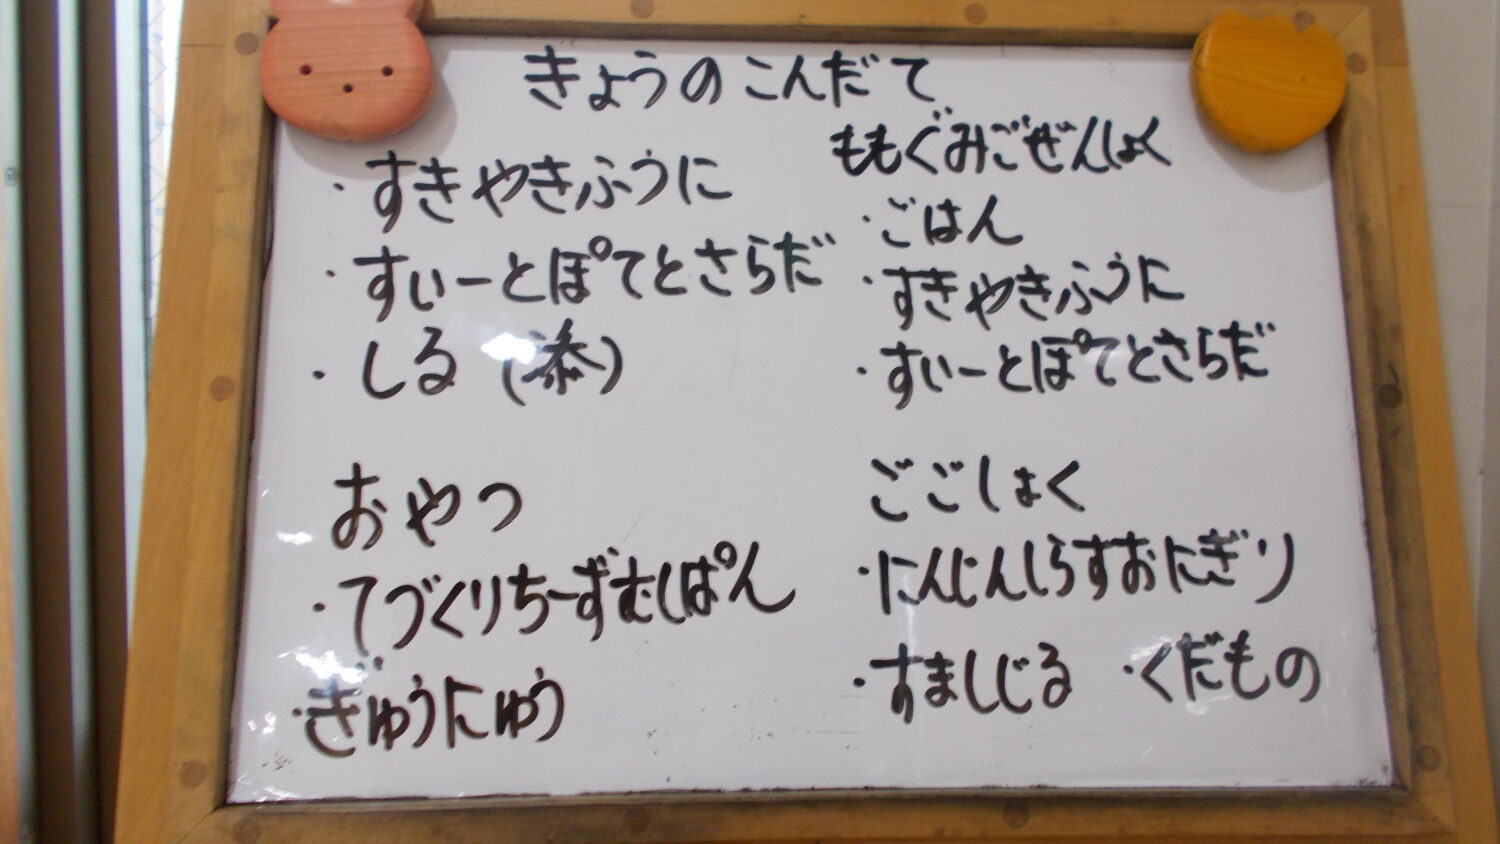 きょうのこんだて
・すきやきふうに
・すぃーとぽてとさらだ
・しる(添)
おやつ
・てづくりちーずむしぱん
・ぎゅうにゅう
ももぐみごぜんしょく
・ごはん
・すきやきふうに
・すぃーとぽてとさらだ
ごごしょく
・にんじんしらすおにぎり
・すましじる ・くだもの